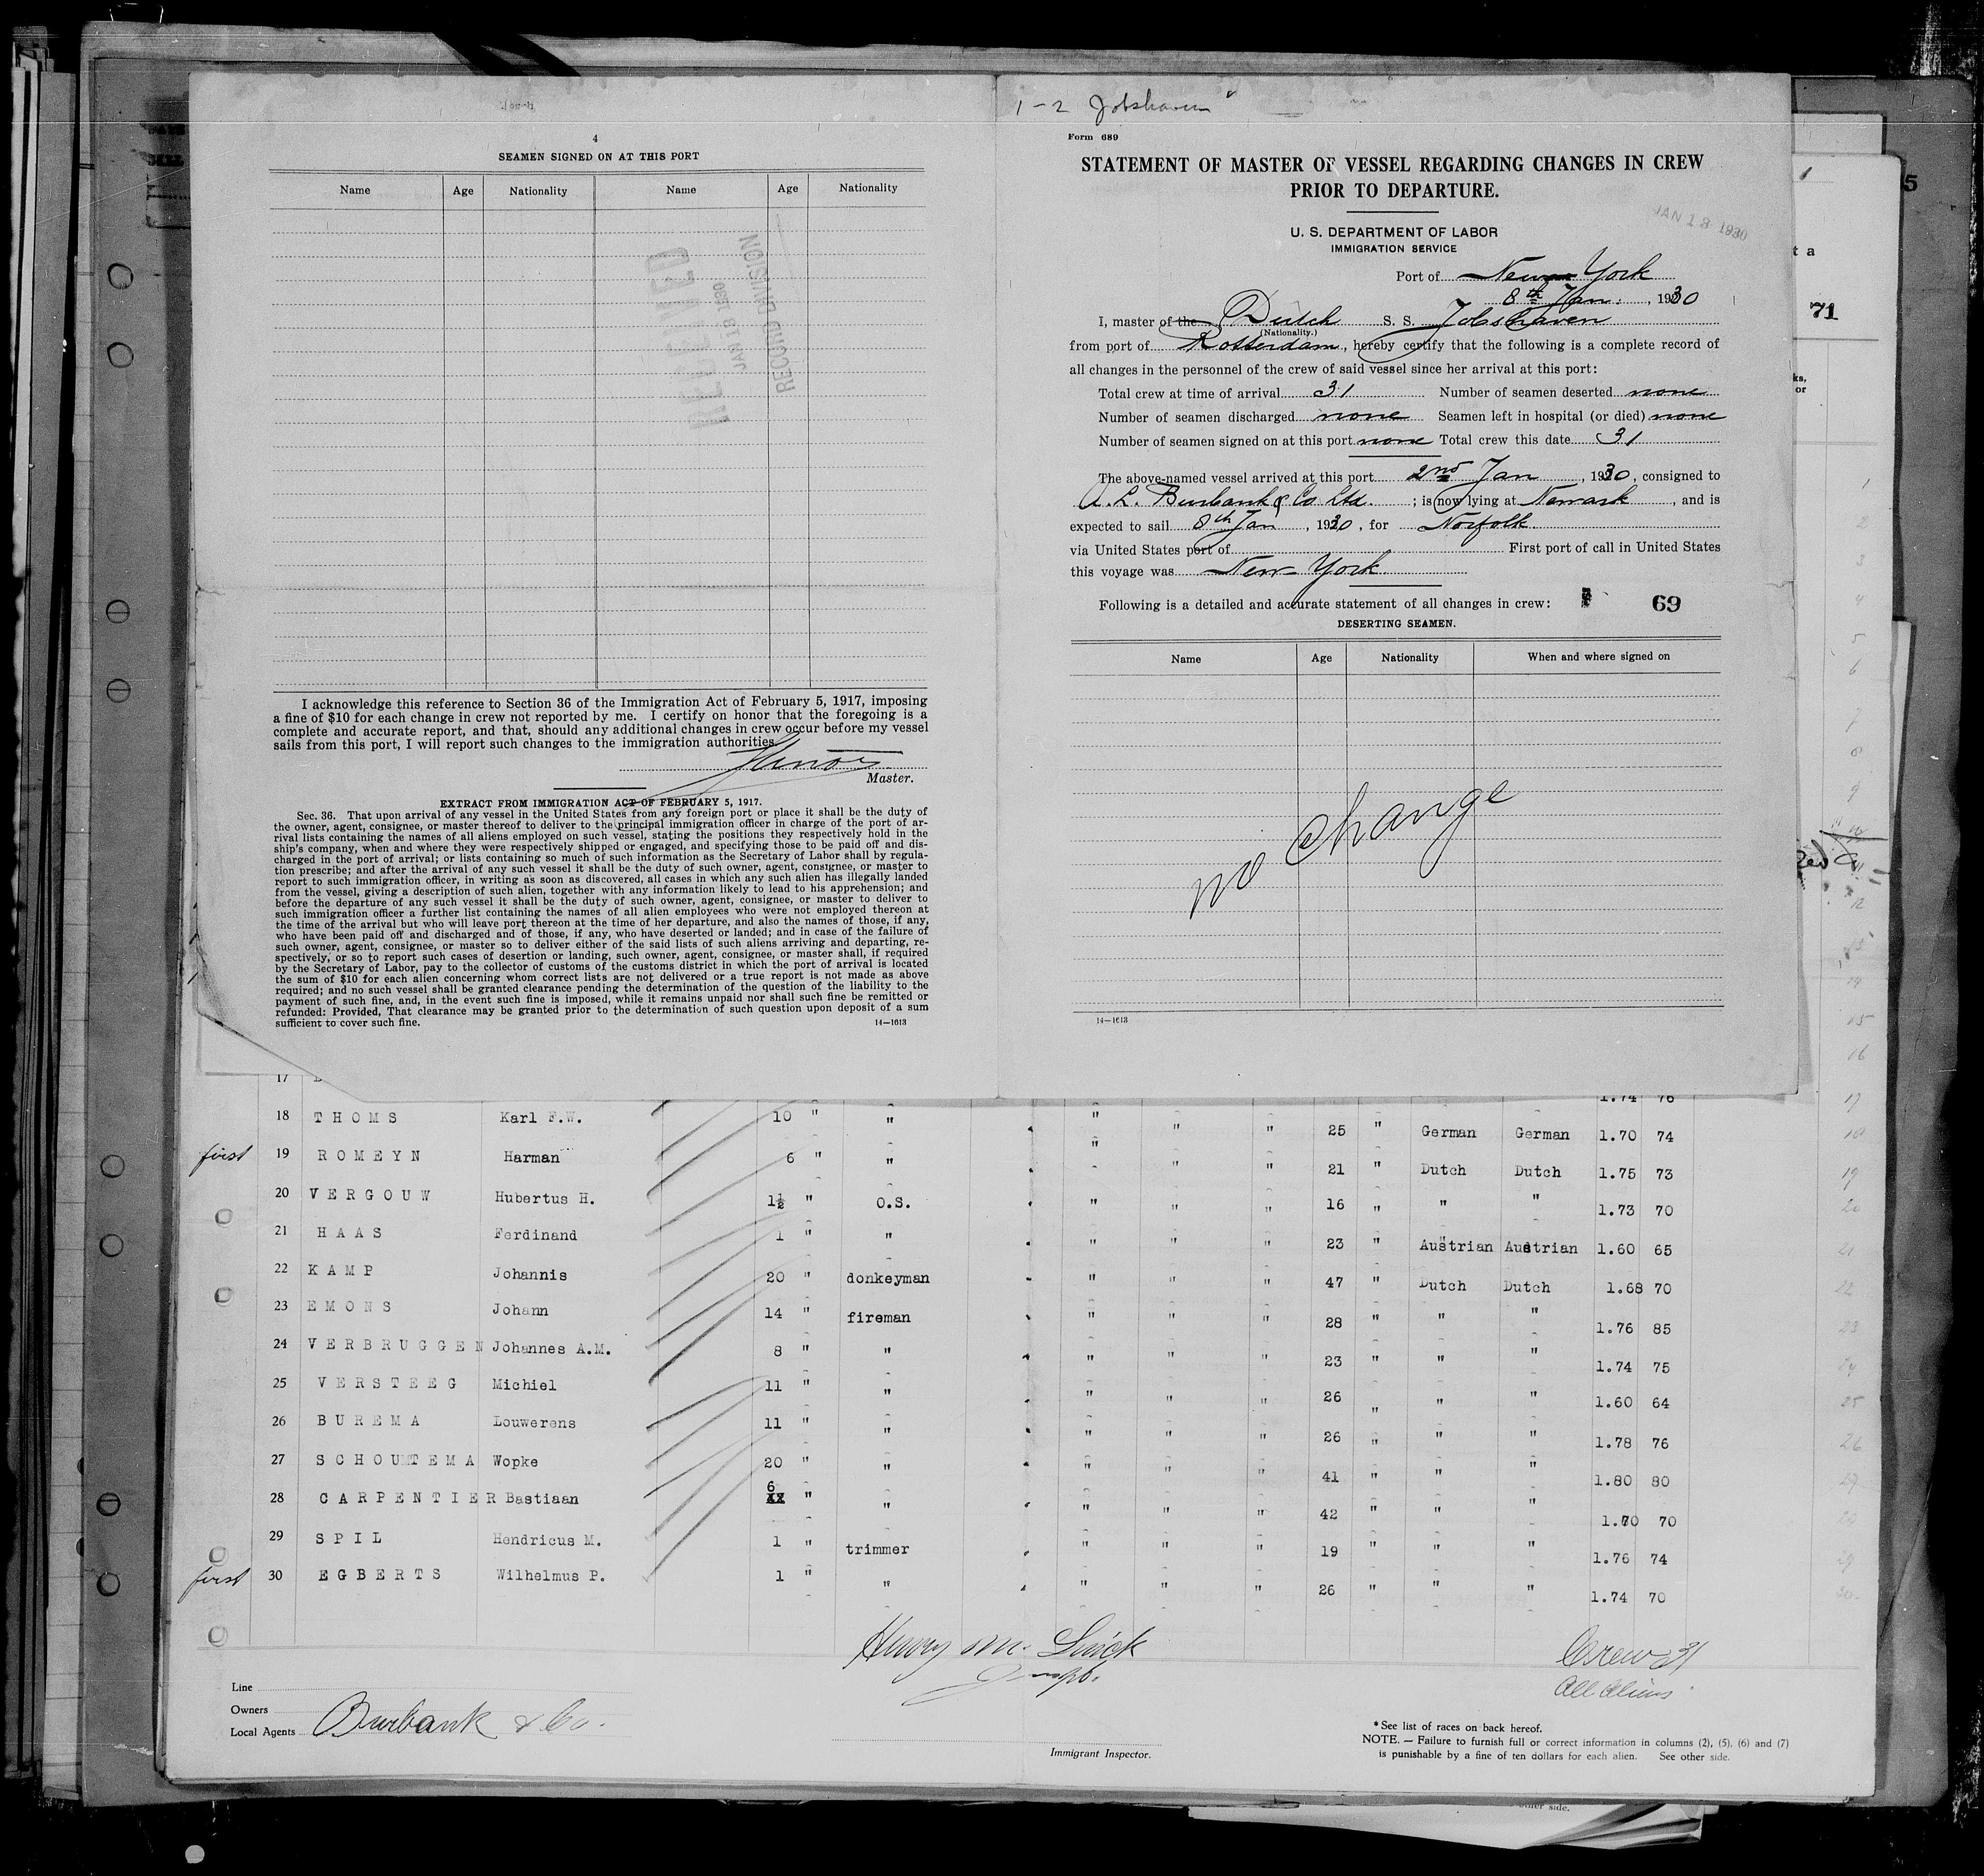 4
SEAMEN SIGNED ON AT THIS PORT
Name Age Nationality Name Age Nationality
RECEIVED
JAN 18 1930
RECORD DIVISION
I acknowledge this reference to Section 36 of the Immigration Act of February 5, 1917, imposing
a fine of $10 for each change in crew not reported by me. I certify on honor that the foregoing is a
complete and accurate report, and that, should any additional changes in crew occur before my vessel
sails from this port, I will report such changes to the immigration authorities.
Master.
EXTRACT FROM IMMIGRATION ACT OF FEBRUARY 5, 1917.
Sec. 36. That upon arrival of any vessel in the United States from any foreign port or place it shall be the duty of
the owner, agent, consignee, or master thereof to deliver to the principal immigration officer in charge of the port of ar-
rival lists containing the names of all aliens employed on such vessel, stating the positions they respectively hold in the
ship's company, when and where they were respectively shipped or engaged, and specifying those to be paid off and dis-
charged in the port of arrival; or lists containing so much of such information as the Secretary of Labor shall by regula-
tion prescribe; and after the arrival of any such vessel it shall be the duty of such owner, agent, consignee, or master to
report to such immigration officer, in writing as soon as discovered, all cases in which any such alien has illegally landed
from the vessel, giving a description of such alien, together with any information likely to lead to his apprehension; and
before the departure of any such vessel it shall be the duty of such owner, agent, consignee, or master to deliver to
such immigration officer a further list containing the names of all alien employees who were not employed thereon at
the time of the arrival but who will leave port thereon at the time of her departure, and also the names of those, if any,
who have been paid off and discharged and of those, if any, who have deserted or landed; and in case of the failure of
such owner, agent, consignee, or master so to deliver either of the said lists of such aliens arriving and departing, re-
spectively, or so to report such cases of desertion or landing, such owner, agent, consignee, or master shall, if required
by the Secretary of Labor, pay to the collector of customs of the customs district in which the port of arrival is located
the sum of $10 for each alien concerning whom correct lists are not delivered or a true report is not made as above
required; and no such vessel shall be granted clearance pending the determination of the question of the liability to the
payment of such fine, and, in the event such fine is imposed, while it remains unpaid nor shall such fine be remitted or
refunded: Provided, That clearance may be granted prior to the determination of such question upon deposit of a sum
sufficient to cover such fine.
14—1613
1-2 Jobshaven
Form 689
STATEMENT OF MASTER OF VESSEL REGARDING CHANGES IN CREW
PRIOR TO DEPARTURE.
JAN 18 1930
U. S. DEPARTMENT OF LABOR
IMMIGRATION SERVICE
Port of New York
8th Jan. , 1930
I, master of the Dutch S. S. Jobshaven
(Nationality.)
from port of Rotterdam, hereby certify that the following is a complete record of
all changes in the personnel of the crew of said vessel since her arrival at this port:
Total crew at time of arrival 31 Number of seamen deserted none
Number of seamen discharged none Seamen left in hospital (or died) none
Number of seamen signed on at this port none Total crew this date 31
The above-named vessel arrived at this port 2nd Jan , 1930, consigned to
A. L. Burbank & Co Ltd. ; is now lying at Newark , and is
expected to sail 8th Jan , 1930, for Norfolk
via United States port of First port of call in United States
this voyage was New York
Following is a detailed and accurate statement of all changes in crew: 69
DESERTING SEAMEN.
Name Age Nationality When and where signed on
no change
14—1613
71
17 1.74 76
18 THOMS Karl F.W. 10 " " " " " 25 " German German 1.70 74
first 19 ROMEYN Harman 6 " " " " " 21 " Dutch Dutch 1.75 73
20 VERGOUW Hubertus H. 1½ " O.S. " " " 16 " " " 1.73 70
21 HAAS Ferdinand 1 " " " " " 23 " Austrian Austrian 1.60 65
22 KAMP Johannis 20 " donkeyman " " " 47 " Dutch Dutch 1.68 70
23 EMONS Johann 14 " fireman " " " 28 " " " 1.76 85
24 VERBRUGGEN Johannes A.M. 8 " " " " " 23 " " " 1.74 75
25 VERSTEEG Michiel 11 " " " " " 26 " " " 1.60 64
26 BUREMA Louwerens 11 " " " " " 26 " " " 1.78 76
27 SCHOUTEMA Wopke 20 " " " " " 41 " " " 1.80 80
28 CARPENTIER Bastiaan 6 " " " " " 42 " " " 1.70 70
29 SPIL Hendricus M. 1 " trimmer " " " 19 " " " 1.76 74
first 30 EGBERTS Wilhelmus P. 1 " " " " " 26 " " " 1.74 70
Crew 31
All Aliens
Line
Owners
Local Agents Burbank & Co.
Immigrant Inspector.
*See list of races on back hereof.
NOTE. — Failure to furnish full or correct information in columns (2), (5), (6) and (7)
is punishable by a fine of ten dollars for each alien. See other side.